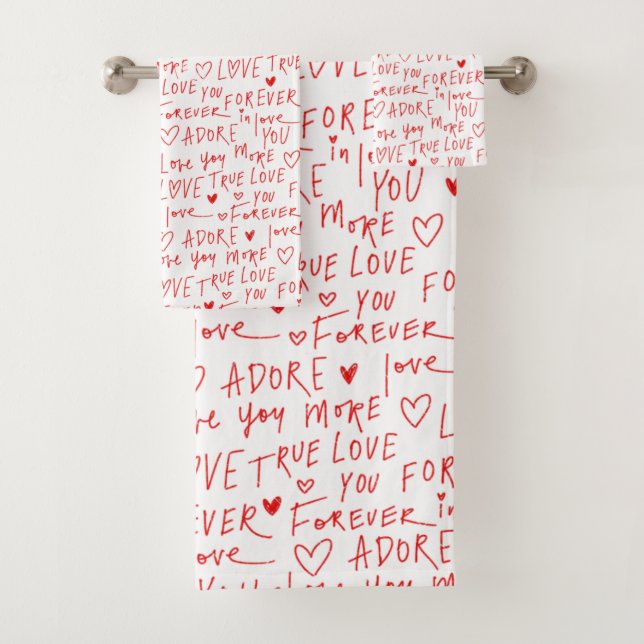 MORE LOVE TRUE
LOVE YOU FOREVER
FOREVER in love
ADORE YOU
Love you MORE
LOVE TRUE LOVE
YOU FO
love FOREVER
ADORE love
you MORE
OVE TRUE LOVE
YOU FOR
LOVE TRUE
LOVE YOU
FOREVER
FOREVER in love
ADORE YOU
you MORE
LOVE TRUE
YOU FO
LOVE
FORE
in
YOU
MORE
TRUE LOVE
YOU FO
love FOREVER
ADORE love
you MORE
OVE TRUE LOVE
YOU FOR
EVER FOREVER in
love ADORE